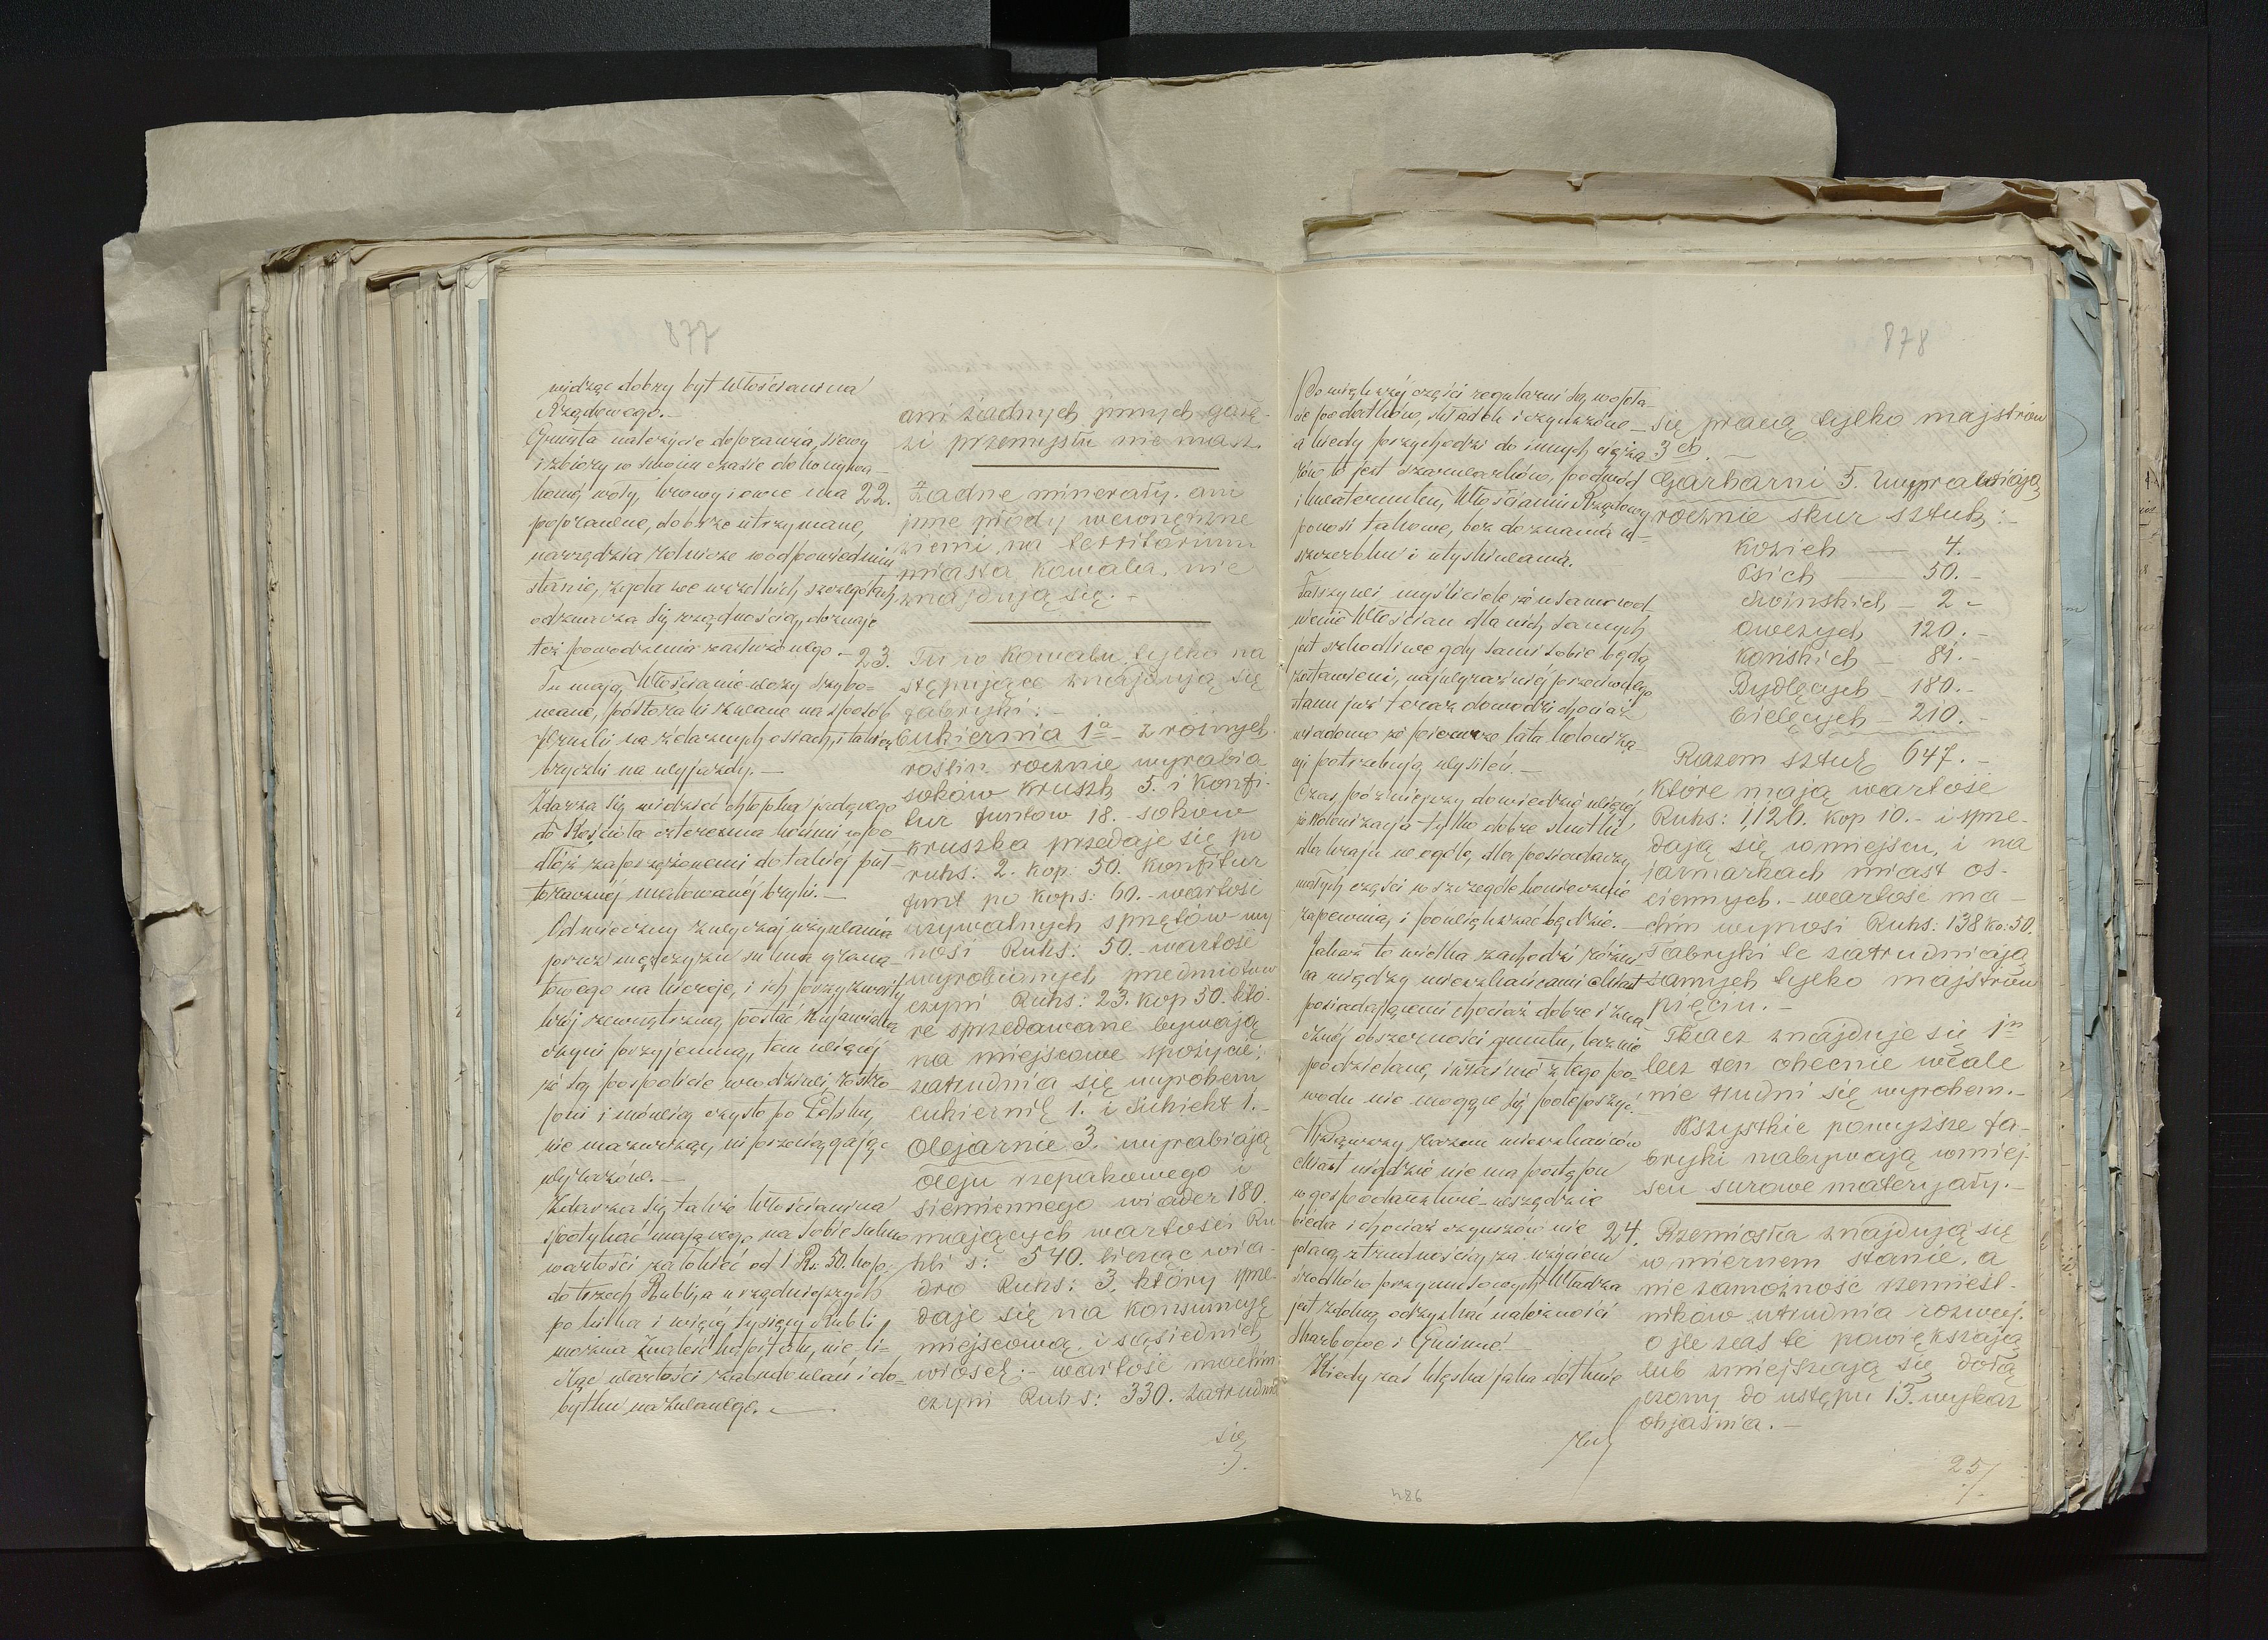 877
widząc dobry byt Włościanina
Rządowego.
Grunta należycie doprawia, siewy
i zbiory w swoim czasie dokonywa
konie, woły, krowy i owce ma
poprawne, dobrze utrzymane,
narzędzia rolnicze w odpowiednim
stanie, zgoła we wszelkich szczegółach
odznacza się rządnością, doznaje
też powodzenia zasłużonego. —
Tu mają Włościanie wozy szybo=
wane, półtoraki zwane na sposób
Pruski na żelaznych osiach, i także
bryczki na wyjazdy. —
Zdarza się widzieć chłopka jadącego
do Kościoła czterema końmi w po
dłóż zaprzężonemi do takiej puł-
toracznej malowanéj bryki. —
Odwieczny zwyczaj używania
przez mężczyzn sukna grana-
towego na kieroje, i ich przyzwoity
krój zewnętrzną postać Kujawiaka
czyni przyjemną, tem więcej
że są pospolicie urodziwi, rostro-
pni i mówiąc czysto po Polsku,
nie mazurząc, ni przeciągając
wyrazów. —
Zdarza się także Włościanina
spotykać mającego na sobie sukno
wartości za łokieć od 1 Rs. 50. kop.
do trzech Rubli, a u rządniejszych
po kilka i więcéj tysięcy Rubli
można znaleść kapitału, nie li-
cząc wartości zabudowań i do=
bytku nazwanego. —
ani żadnych jnnych gałę-
zi przemysłu nie masz.
22. Żadne minerały, ani
jnne płody wewnętrzne
ziemi na territorium
miasta Kowala, nie
znajdują się. -
23. Tu w Kowalu tylko na
stępujące znajdują się
fabryki: -
Cukiernia 1a - z różnych
roślin rocznie wyrabia
soków kruszk 5. i Konfi-
tur funtow 18. - soków
kruszka przedaje się po
rubs. 2. kop. 50. Konfitur
funt po kops: 60. - wartość
używalnych sprzętów wy
nosi Rubs: 50. - wartość
wyrobionych przedmiotów
czyni Rubs: 23. kop 50. któ-
re sprzedawane bywają
na miejscowe spożycie;
zatrudnia się wyrobem
cukiernik 1. i Subiekt 1. -
Olejarnie 3. wyrabiają
Oleju rzepakowego i
siemiennego wiader 180.
mających wartości Ru
bli s: 540. licząc wia-
dro Rubs: 3. który sprze-
daje się na konsumcyę
miejscową, i sąsiednich
wiosek; - wartość machin
czyni Rubs: 330. zatrudnia
się
878
Po większéj części regularni są w opła-
cie podatków, składek i czynszów —
a kiedy przychodzi do innych cięża
rów to jest szarwarków, podwód
i kwaterunku, Włościanin Rządowy
ponosi takowe, bez doznania u-
szczerbku i utyskiwania.
Fałszywi myśliciele że usamowol
nienie Włościan dla nich samych
jest szkodliwe gdy sami sobie będą
zostawieni, najwyraźniéj przeciwnego
stanu już teraz dowodzi chociaż
wiadomo że pierwsze lata kolonizą-
cyi potrzebują wysileń. —
Czas późniejszy dowiedzie więcéj,
że kolonizacja tylko dobre skutki
dla kraju w ogóle, dla posiadaczy
małych części w szczególe koniecznie
zapewnia, i powiększać będzie. —
Jakaż to wielka zachodzi różni-
ca między mieszkańcami Miast
posiadającemi chociaż dobre i zna-
cznéj obszerności grunta, lecz nie
podzielane, i właśnie z tego po-
wodu nie mogące się polepszyć.
Wziąwszy razem mieszkańców
Miast nigdzie nie ma postępu
w gospodarstwie — wszędzie
bieda i chociaż czynszów nie
płacą, z trudnością, za użyciem
środków przymusowych Władza
jest zdolną odzyskać należności
Skarbowe i Gminne! —
Kiedy zaś klęska jaka dotknie
się pracą tylko majstrów
3ch. —
Garbarni 5. wyprawiają
rocznie skur sztuk: -
Kozich — 4.
Psich — 50. -
Swińskich — 2 -
Owczych 120. -
Końskich — 81. -
Bydlęcych — 180. -
Cielęcych — 210. -
Razem sztuk 647. -
które mają wartość
Rubs: 1,126. kop 10. - i sprze-
dają się w miejscu, i na
jarmarkach miast oś-
ciennych. - wartość ma-
chin wynosi Rubs: 138 ko: 50.
Fabryki te zatrudniają
samych tylko majstrów
pięciu. -
Tkacz znajduje się 1n
lecz ten obecnie wcale
nie trudni się wyrobem. -
Wszystkie powyższe fa-
bryki nabywają w miej-
scu surowe materyały. -
24. Rzemiosła znajdują się
w miernem stanie, a
nie zamożność rzemieśl-
ników utrudnia rozwój.
O jle zaś te powiększają
lub zmiejszają się, dołą
czony do ustępu 13. wykaz
objaśnia. -
25/
486